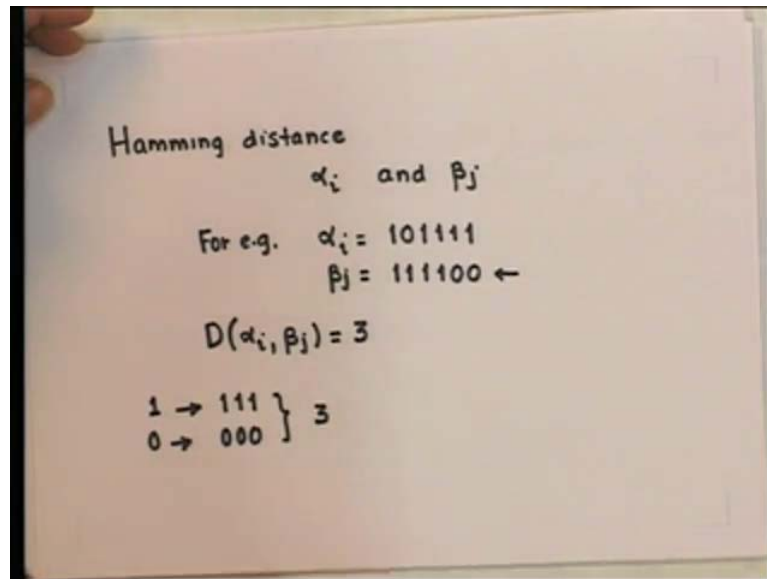 Hamming distance
αi and βj
For e.g. αi = 101111
βj = 111100 ←
D(αi, βj) = 3
1 → 111 } 3
0 → 000